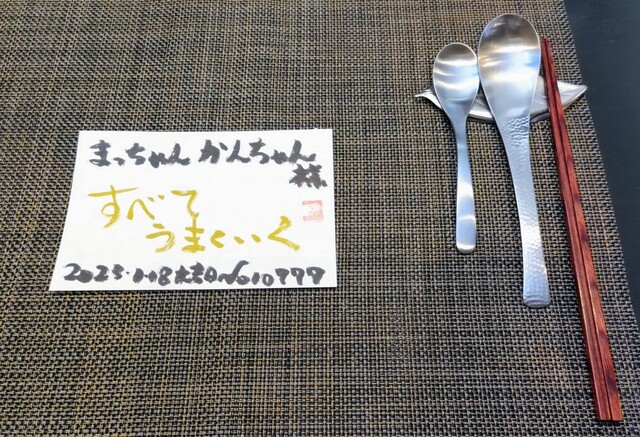 まっちゃん かんちゃん
様
すべて
うまくいく
2025.1.18 大吉日 No10777